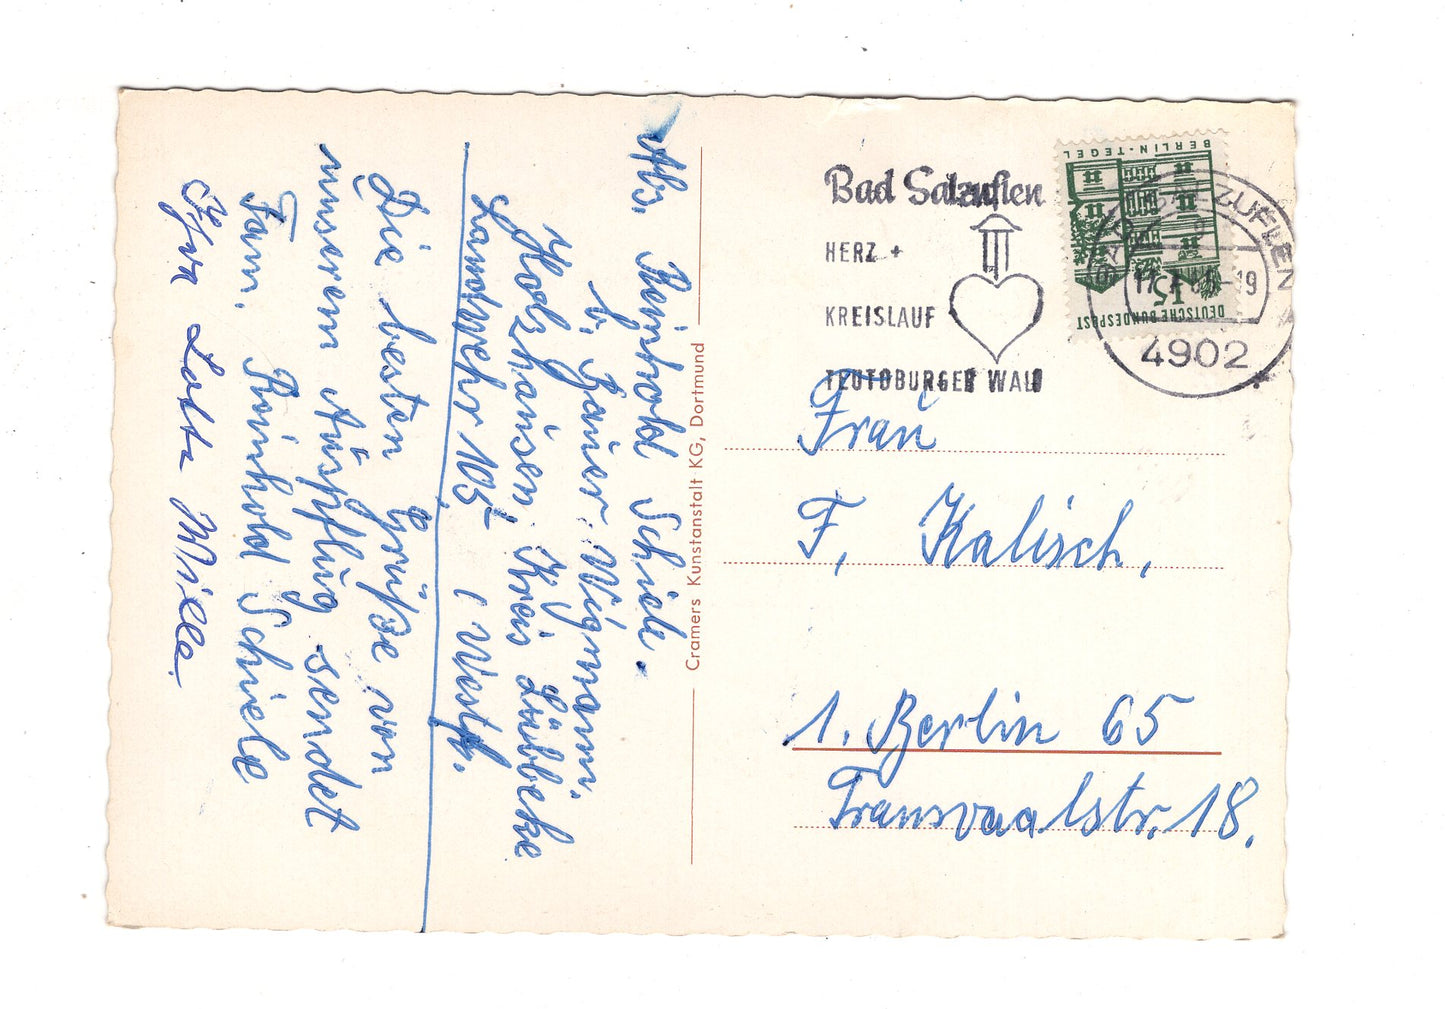 Abs. Reinhold Schiele.
b. Bauer Wigmann.
Holzhausen Kreis Lübbecke
Landwehr 105 (Westf.
Die besten Grüße von
unserem Auspflug sendet
Fam. Reinhold Schiele
Cramers Kunstanstalt KG, Dortmund
Bad Salzuflen
HERZ +
KREISLAUF
TEUTOBURGER WALD
BERLIN-TEGEL
15
DEUTSCHE BUNDESPOST
BAD SALZUFLEN
-19
4902
Frau
F. Kalisch,
1. Berlin 65
Transvaalstr. 18.